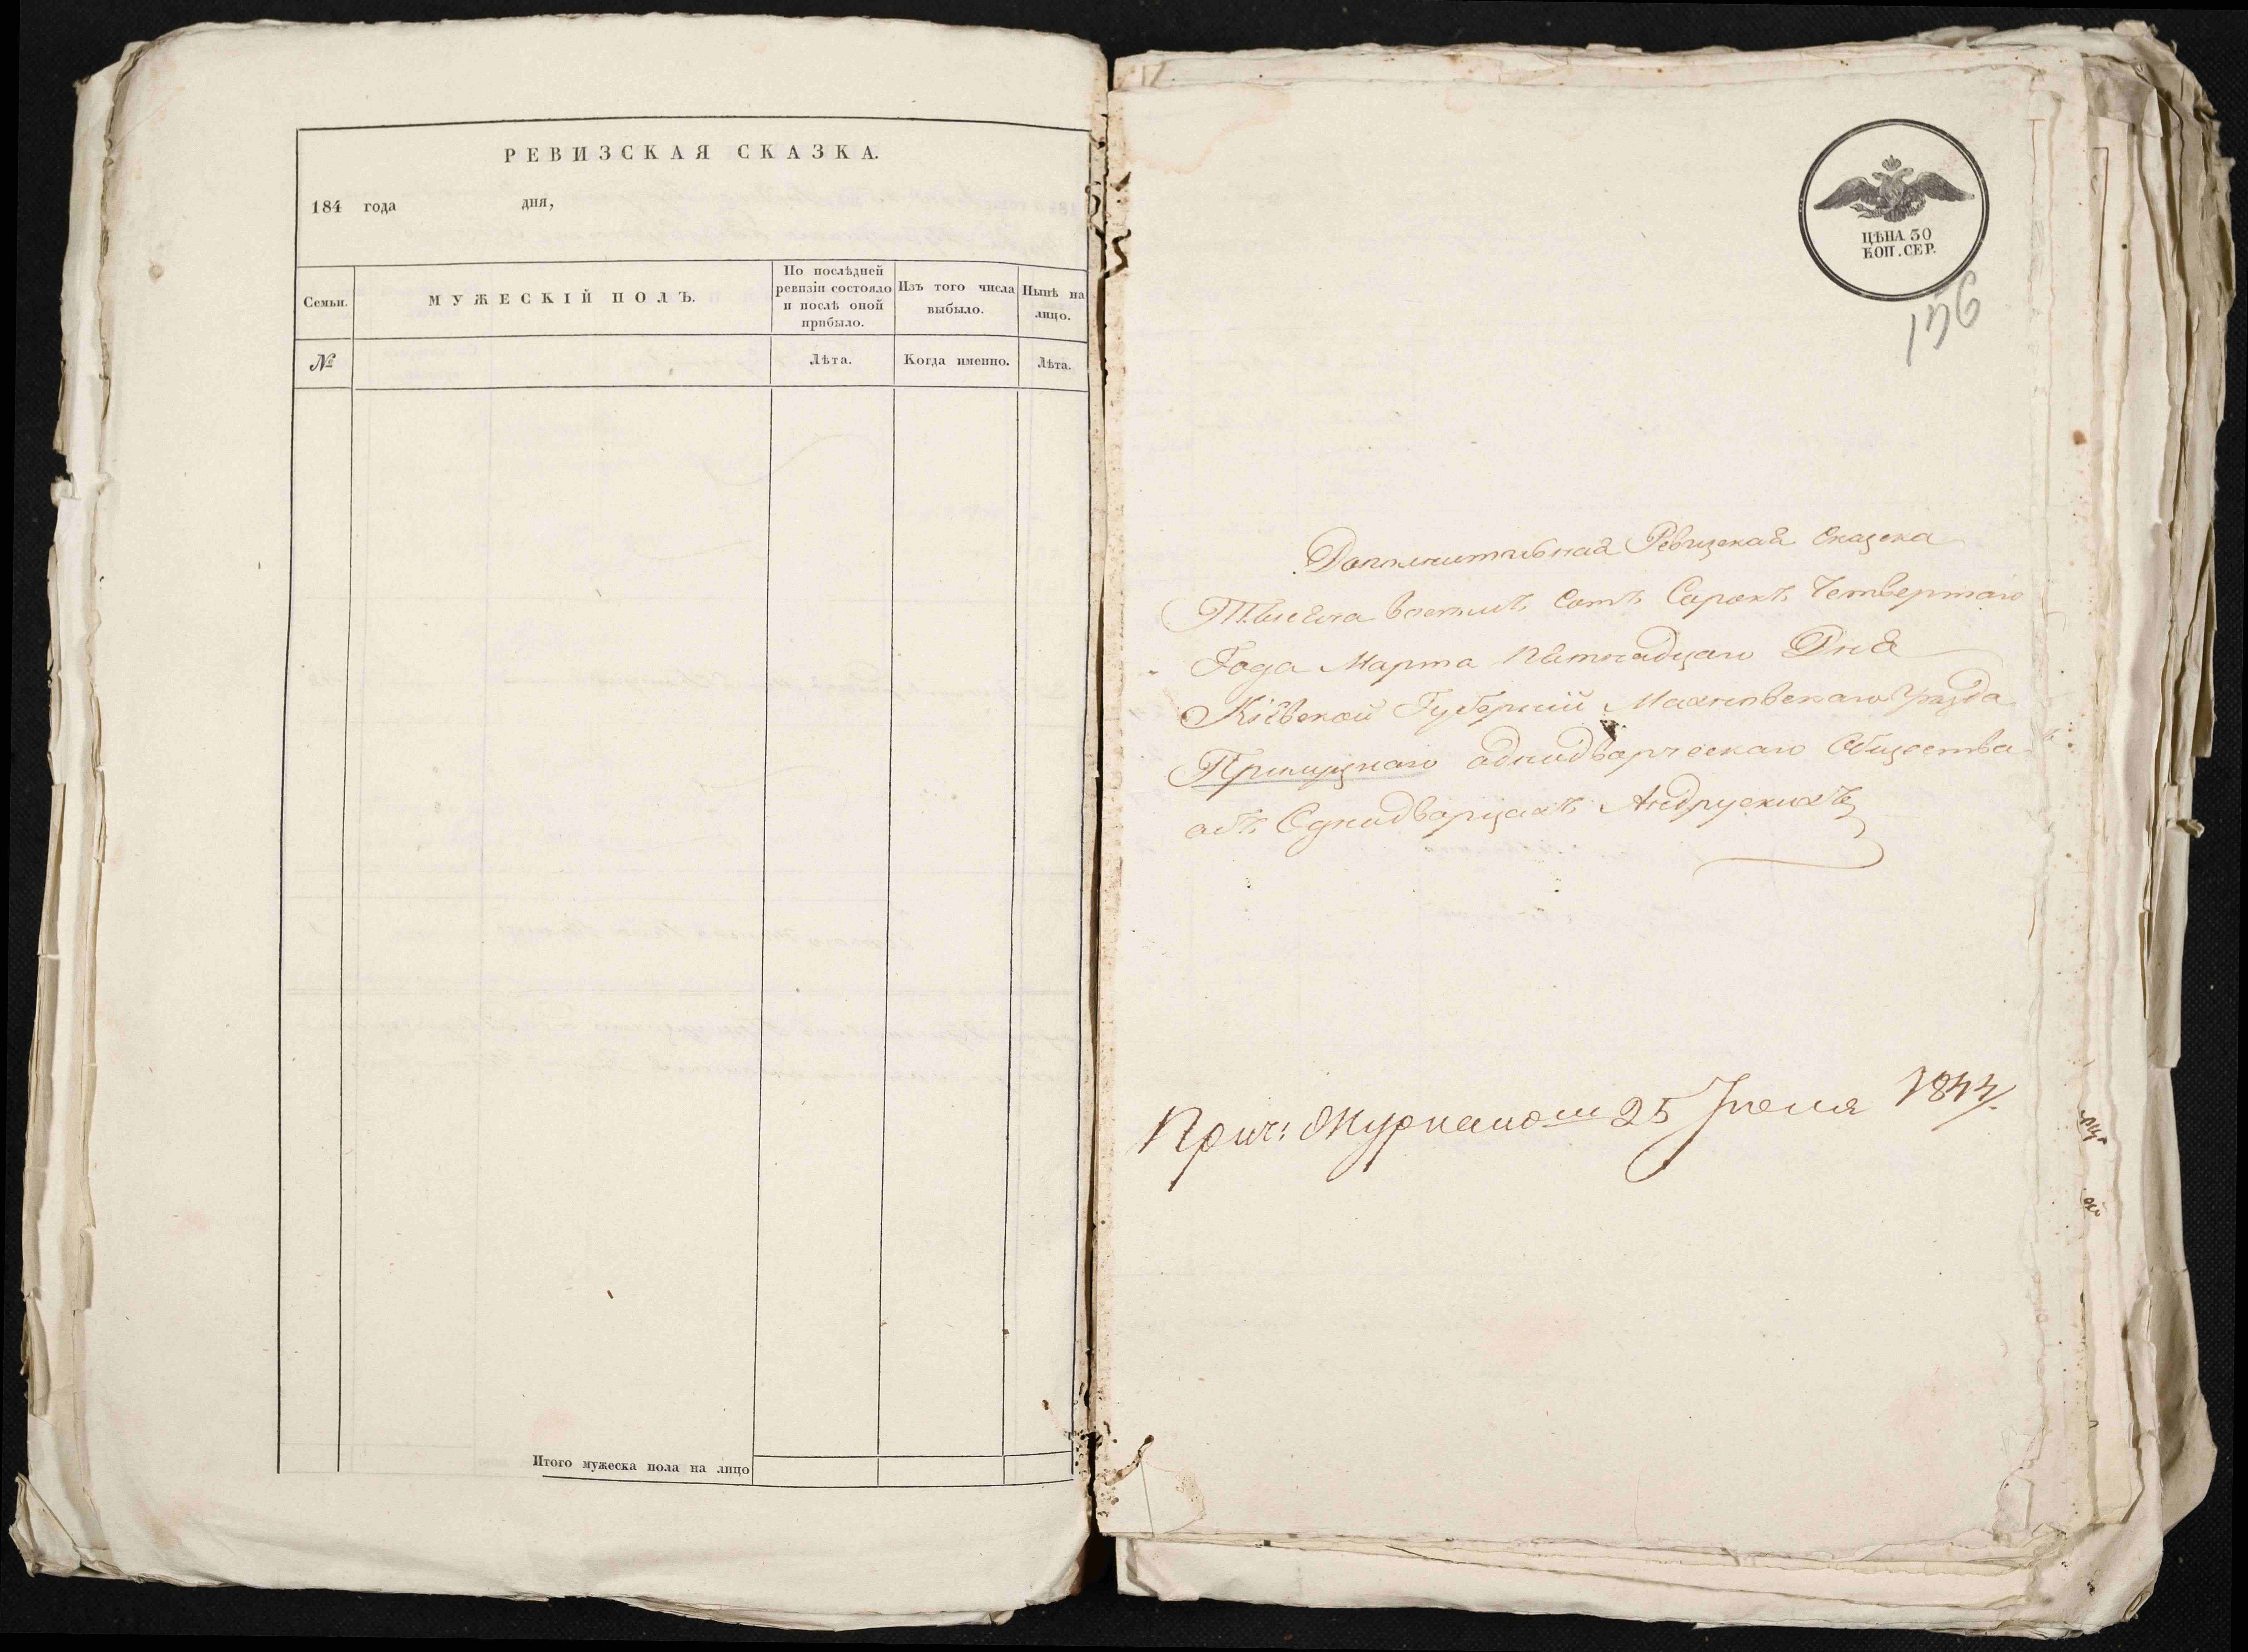 РЕВИЗСКАЯ СКАЗКА.
184 года дня,
Семьи.
МУЖЕСКІЙ ПОЛЪ.
По послѣдней
ревизіи состояло
и послѣ оной
прибыло.
Изъ того числа
выбыло.
Нынѣ на
лицо.
№
Лѣта.
Когда именно.
Лѣта.
Итого мужеска пола на лицо
ЦѢНА 30
КОП. СЕР.
156
Дополнительная Ревизская Сказска
Тысяча восемъ Сотъ Сорокъ Четвертаго
Года Марта Пятнадцаго Дня
Кіевской Губерніи Махновскаго Уезда
Прилуцкаго однодворческаго Общества
объ Однодворцахъ Андрускихъ
25 Іюня 1844